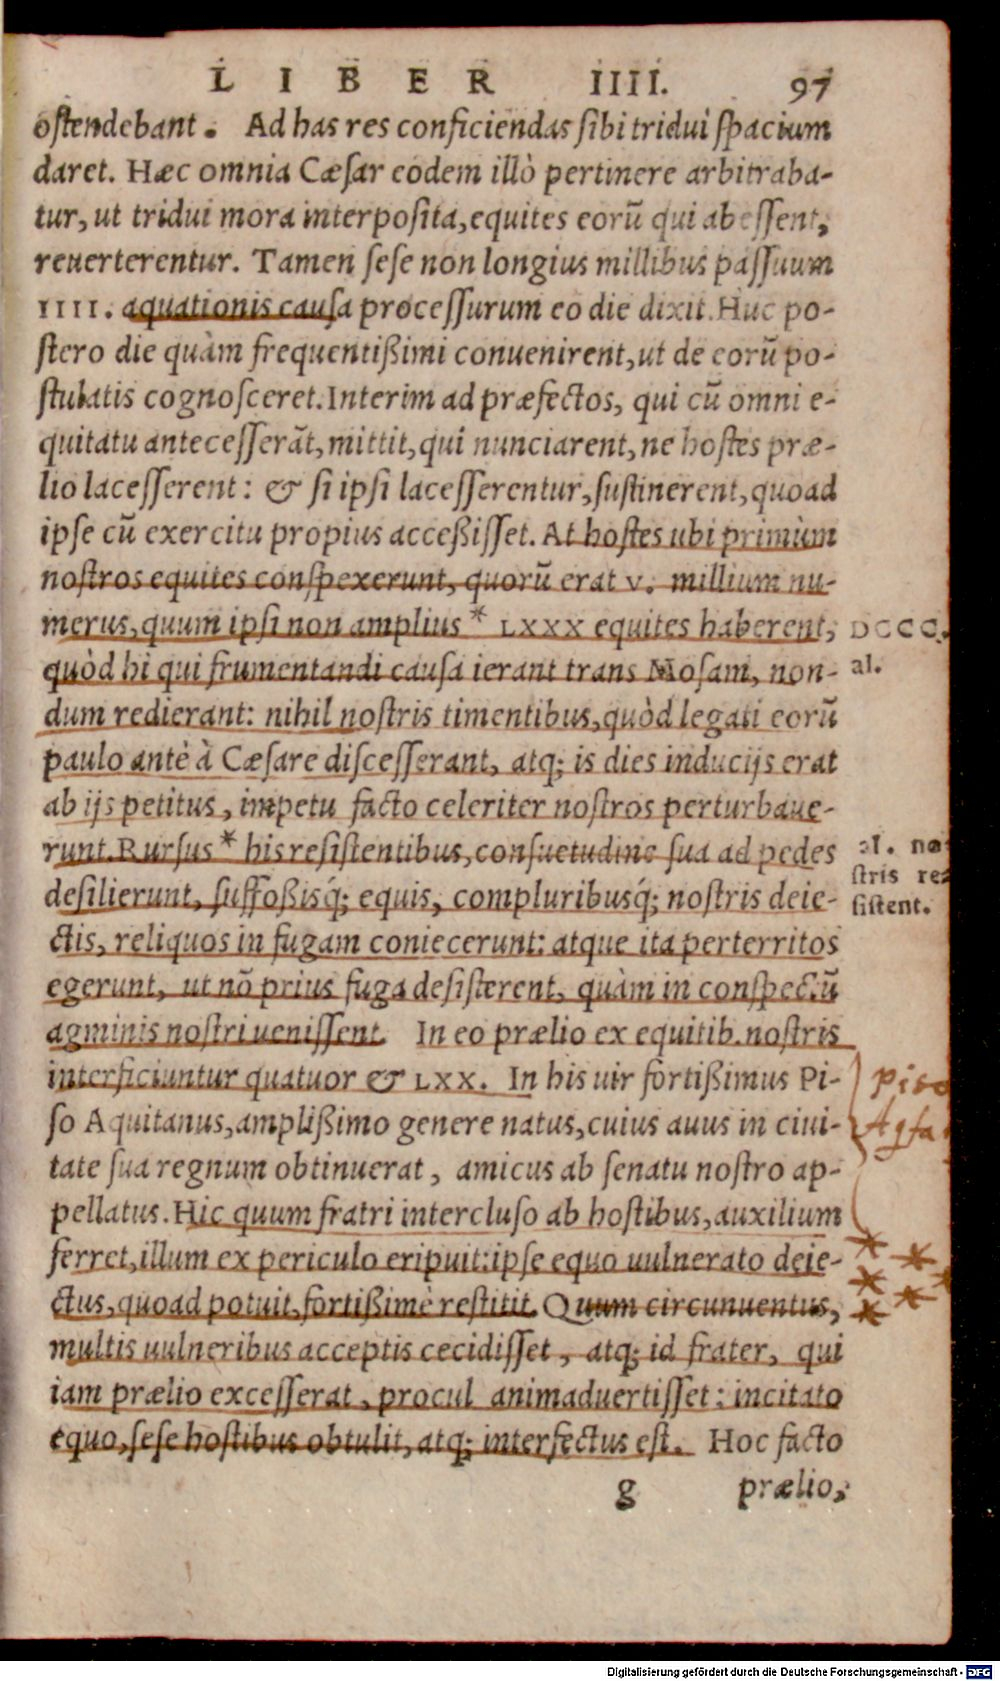 LIBER IIII. 97
oſtendebant. Ad has res conficiendas ſibi tridui ſpacium
daret. Hæc omnia Cæſar eodem illò pertinere arbitraba-
tur, ut tridui mora interpoſita, equites eorũ qui abeſſent,
reuerterentur. Tamen ſeſe non longius millibus paſſuum
IIII. aquationis cauſa proceſſurum eo die dixit. Huc po-
ſtero die quàm frequentißimi conuenirent, ut de eorũ po-
ſtulatis cognoſceret. Interim ad præfectos, qui cũ omni e-
quitatu anteceſſerãt, mittit, qui nunciarent, ne hoſtes præ-
lio laceſſerent: & ſi ipſi laceſſerentur, ſuſtinerent, quoad
ipſe cũ exercitu propius acceßiſſet. At hoſtes ubi primùm
noſtros equites conſpexerunt, quorũ erat V. millium nu-
merus, quum ipſi non amplius * LXXX equites haberent, DCCC.
quòd hi qui frumentandi cauſa ierant trans Moſam, non- al.
dum redierant: nihil noſtris timentibus, quòd legati eorũ
paulo antè à Cæſare diſceſſerant, atq; is dies induciis erat
ab iis petitus, impetu facto celeriter noſtros perturbaue-
runt. Rurſus * his reſiſtentibus, conſuetudine ſua ad pedes al. no
deſilierunt, ſuffoßisq́; equis, compluribusq́; noſtris deie- ſtris re
ctis, reliquos in fugam coniecerunt: atque ita perterritos ſiſtent.
egerunt, ut nõ prius fuga deſiſterent, quàm in conſpectũ
agminis noſtri ueniſſent. In eo prælio ex equitib. noſtris
interficiuntur quatuor & LXX. In his uir fortißimus Pi- Piso
ſo Aquitanus, amplißimo genere natus, cuius auus in ciui-
tate ſua regnum obtinuerat, amicus ab ſenatu noſtro ap-
pellatus. Hic quum fratri intercluſo ab hoſtibus, auxilium
ferret, illum ex periculo eripuit: ipſe equo uulnerato deie-
ctus, quoad potuit, fortißimè reſtitit. Quum circunuentus,
multis uulneribus acceptis cecidiſſet, atq; id frater, qui
iam prælio exceſſerat, procul animaduertiſſet: incitato
equo, ſeſe hoſtibus obtulit, atq; interfectus eſt. Hoc facto
g prælio,
Digitalisierung gefördert durch die Deutsche Forschungsgemeinschaft - DFG